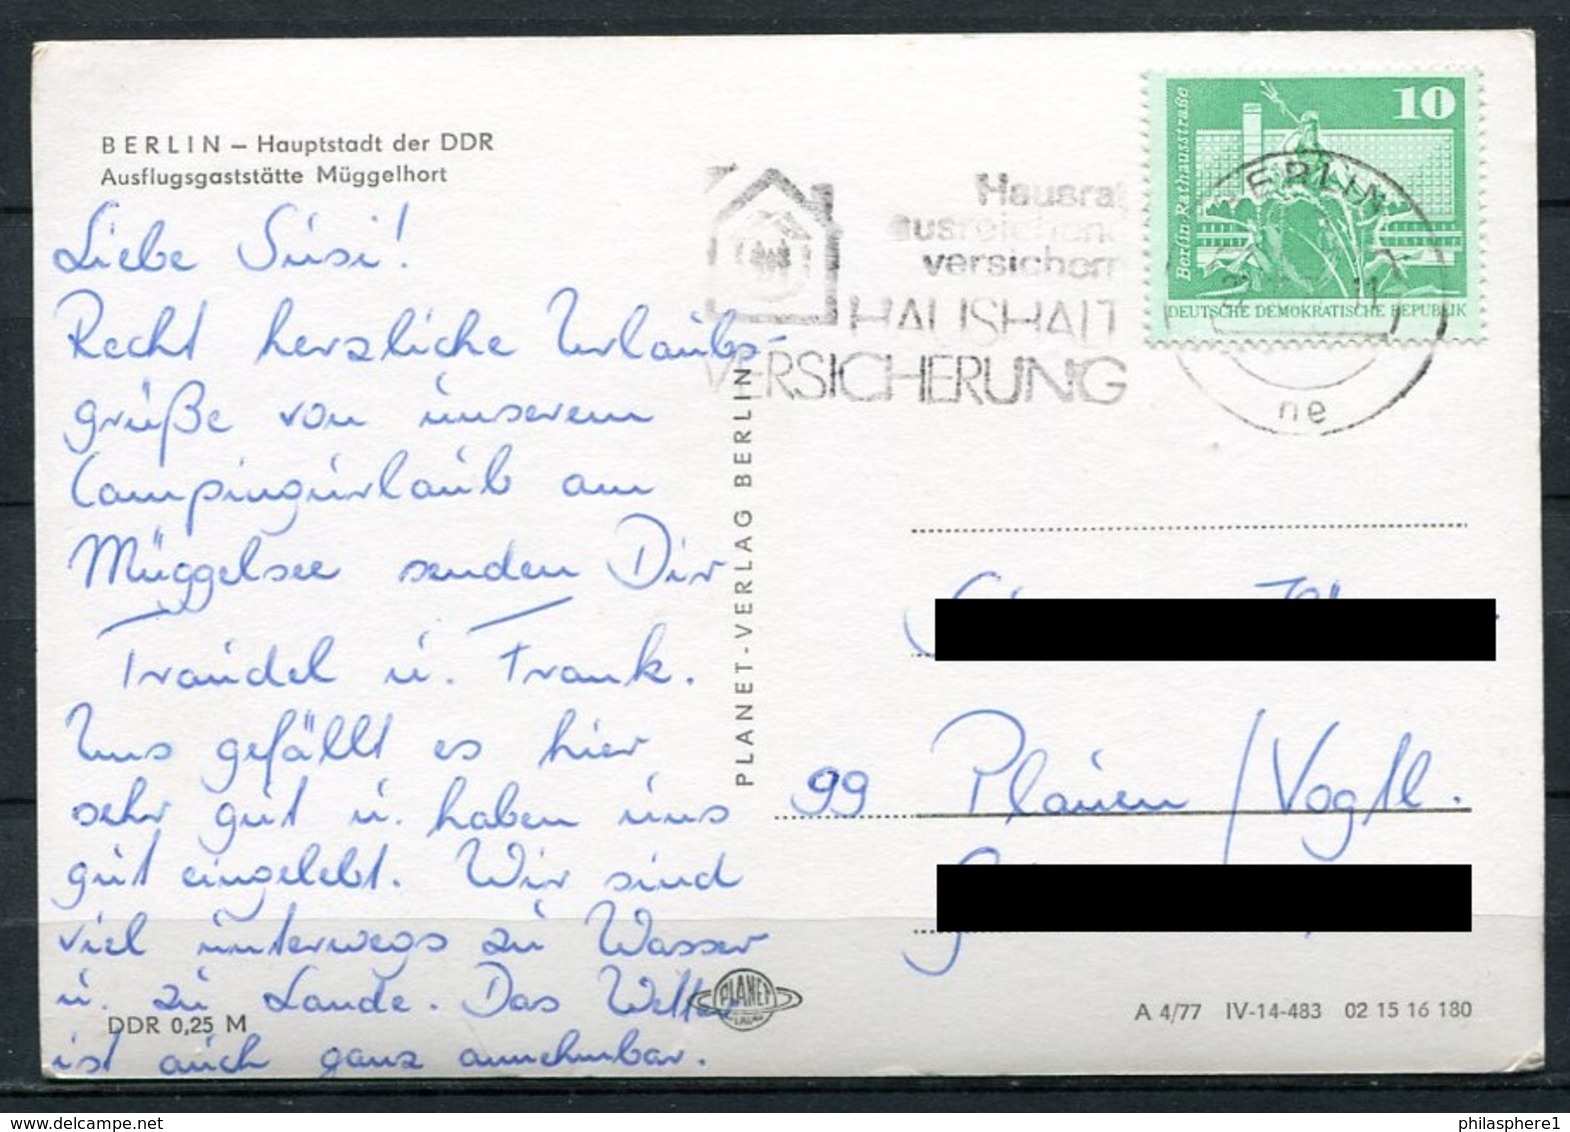 BERLIN – Hauptstadt der DDR
Ausflugsgaststätte Müggelhort
Liebe Susi!
Recht herzliche Urlaubs-
grüße von unserem
Campingurlaub am
Müggelsee senden Dir
Traudel u. Frank.
Uns gefällt es hier
sehr gut u. haben uns
gut eingelebt. Wir sind
viel unterwegs zu Wasser
u. zu Lande. Das Wetter
ist auch ganz annehmbar.
DDR 0,25 M
PLANET-VERLAG BERLIN
PLANET
Hausrat
ausreichend
versichern
HAUSHALT
VERSICHERUNG
10
Berlin Rathausstraße
DEUTSCHE DEMOKRATISCHE REPUBLIK
BERLIN
11
ne
99 Plauen / Vogtl.
A 4/77 IV-14-483 02 15 16 180
philasphere1